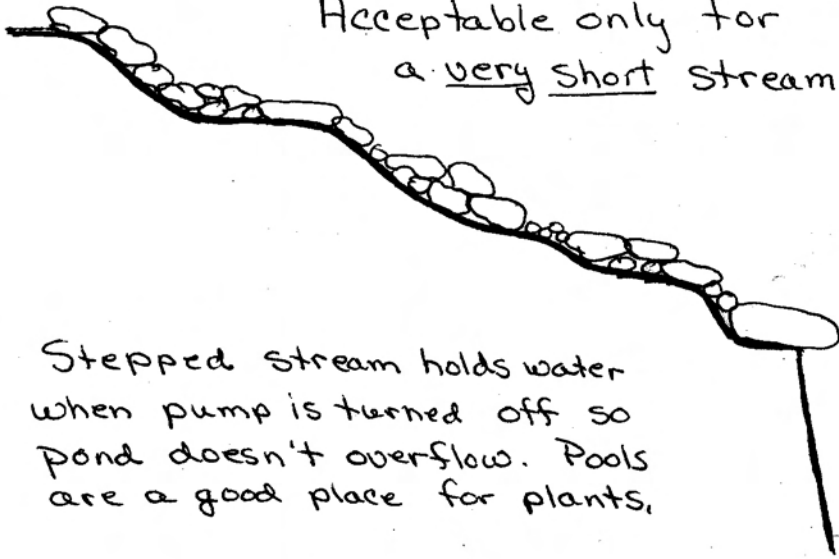 Acceptable only for
a very short stream
Stepped stream holds water
when pump is turned off so
pond doesn't overflow. Pools
are a good place for plants.